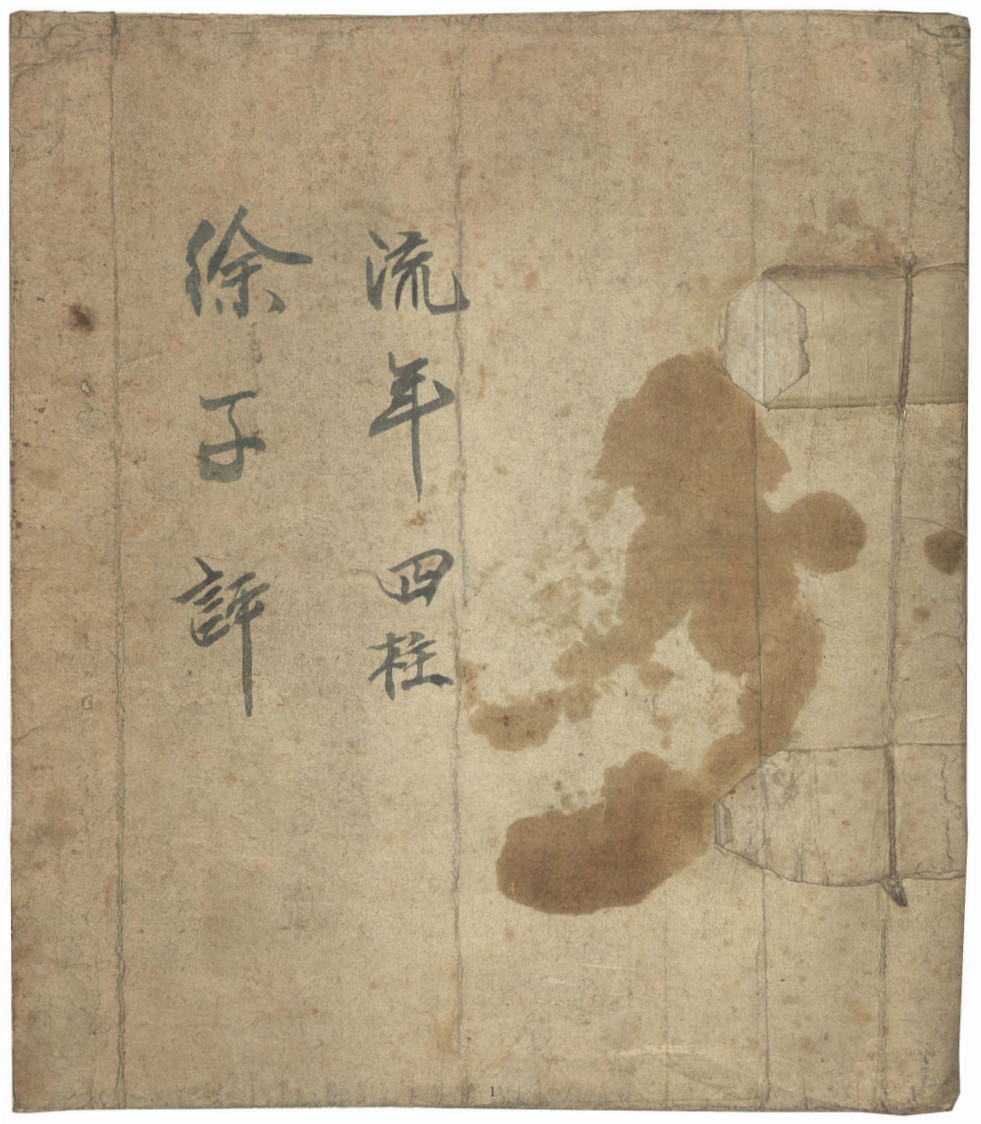 流年四柱
徐子評
1